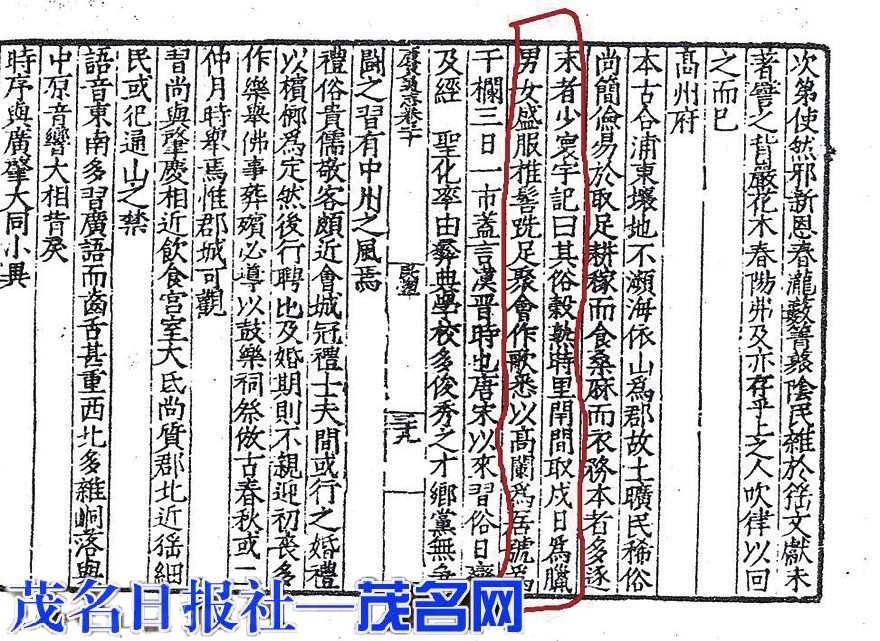 次第使然邪新恩春瀧藪箐叢陰民雜於徭文獻未
著譬之背嚴花木春陽弗及亦存乎上之人吹律以回
之而已
高州府
本古合浦東壤地不瀕海依山爲郡故土曠民稀俗
尚簡儉易於取足耕稼而食桑麻而衣務本者多逐
末者少寰宇記曰其俗穀熟時里閈間取戌日爲臘
男女盛服推髻跣足聚會作歌悉以高闌爲居號爲
干欄三日一市蓋言漢晉時也唐宋以來習俗日變
及經 聖化率由彜典學校多俊秀之才鄉黨無爭
廣東志卷二十
三十九
鬬之習有中州之風焉
禮俗貴儒敬客頗近會城冠禮士夫間或行之婚禮
以檳榔爲定然後行聘比及婚期則不親迎初喪多
作樂舉佛事葬殯必導以鼓樂祠祭倣古春秋或二
仲月時舉焉惟郡城可觀
習尚與肇慶相近飲食宮室大氐尚質郡北近猺細
民或犯通山之禁
語音東南多習廣語而齒舌甚重西北多雜峒落與
中原音響大相背矣
時序與廣肇大同小異
茂名日报社—茂名网